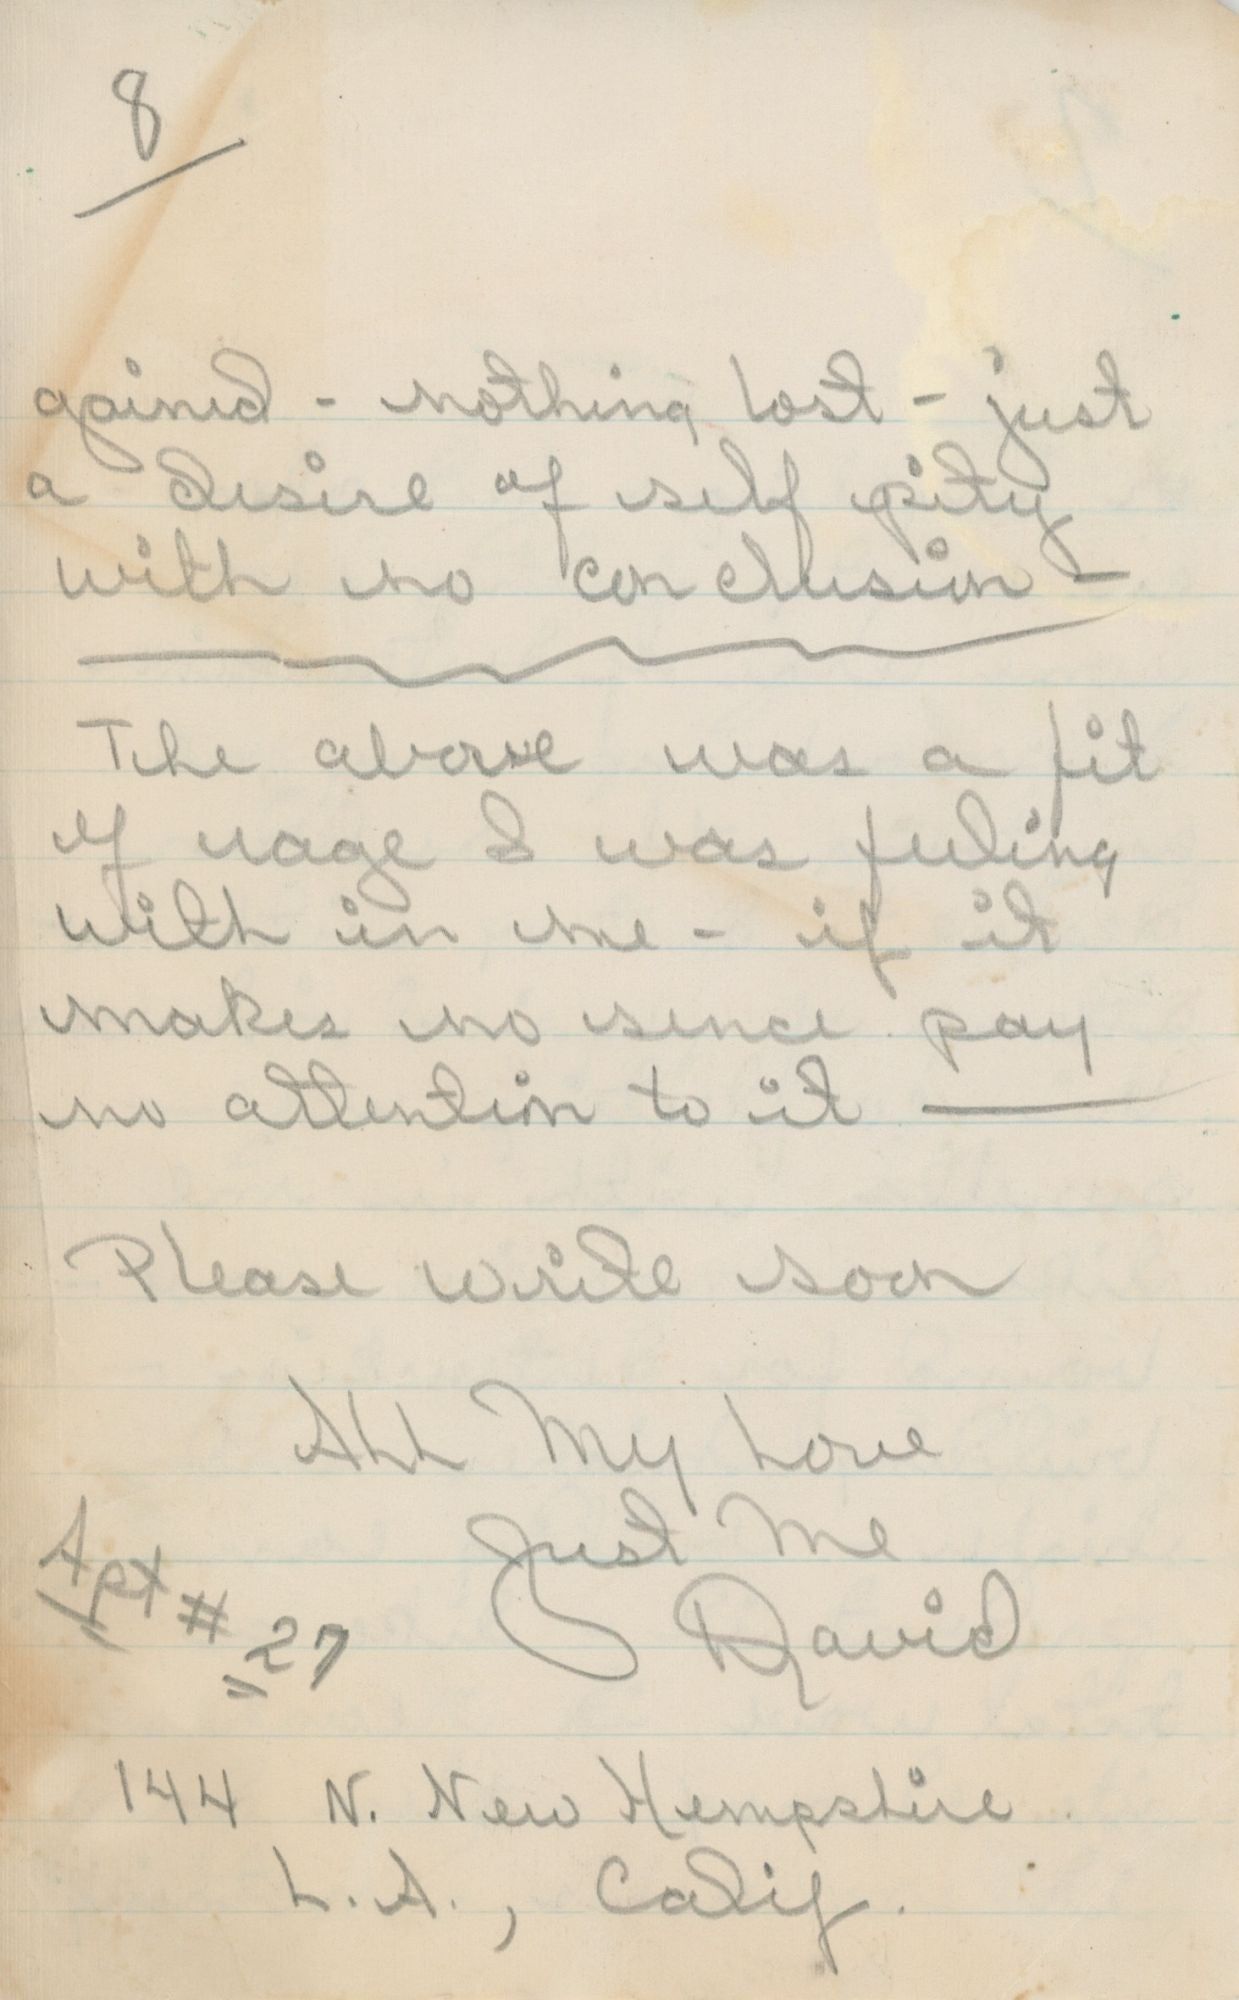 8
gained - nothing lost - just
a desire of self pity
with no conclusion -
The above was a fit
of rage I was feeling
with in me - if it
makes no sence pay
no attention to it —
Please write soon
All My Love
Just Me
David
Apt # 27
144 N. New Hempshire
L.A., Calif.